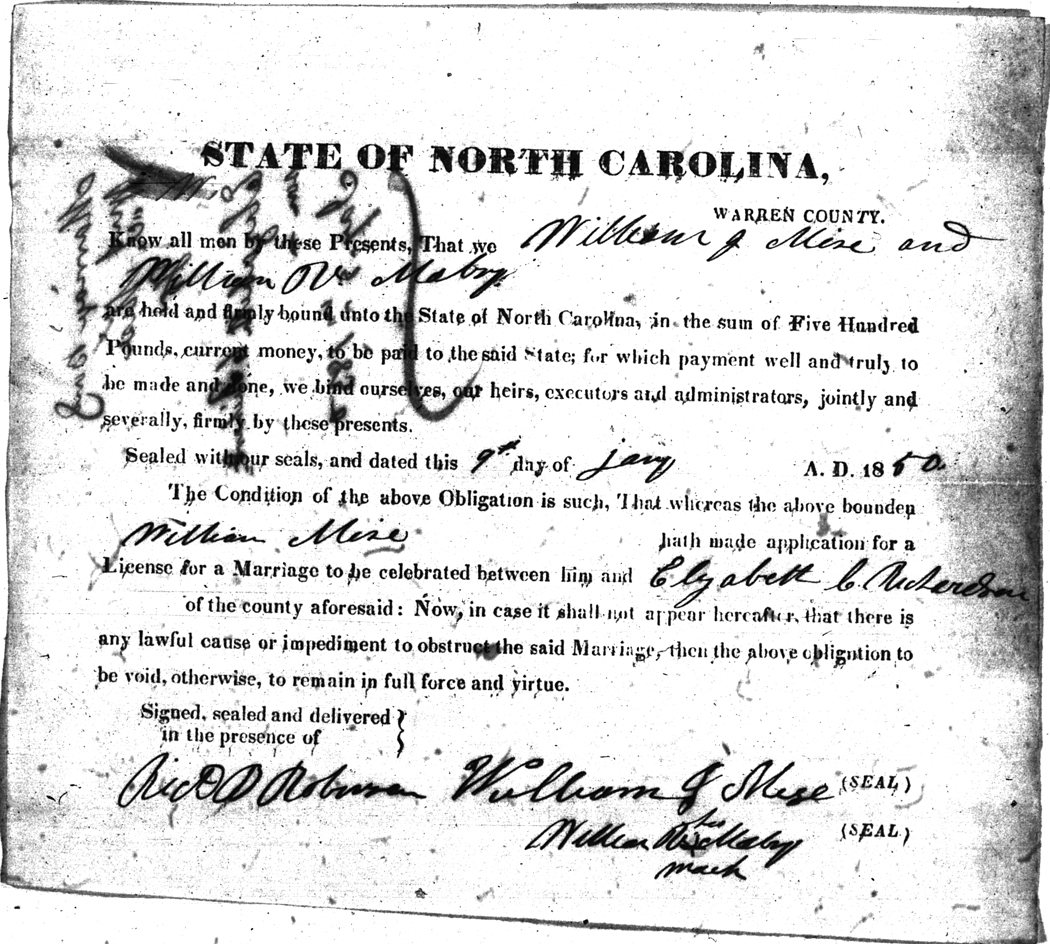 STATE OF NORTH CAROLINA,
WARREN COUNTY.
Know all men by these Presents, That we William J Mise and
William R Mabry
are held and firmly bound unto the State of North Carolina, in the sum of Five Hundred
Pounds, current money, to be paid to the said State; for which payment well and truly to
be made and done, we bind ourselves, our heirs, executors and administrators, jointly and
severally, firmly by these presents.
Sealed with our seals, and dated this 9th day of jany A. D. 1850
The Condition of the above Obligation is such, That whereas the above bounden
William Mise hath made application for a
License for a Marriage to be celebrated between him and Elyabeth C Richardson
of the county aforesaid: Now, in case it shall not appear hereafter, that there is
any lawful cause or impediment to obstruct the said Marriage, then the above obligation to
be void, otherwise, to remain in full force and virtue.
Signed, sealed and delivered }
in the presence of
Richd D Robinson William J Mise (SEAL)
his
William R x Mabry (SEAL)
mark